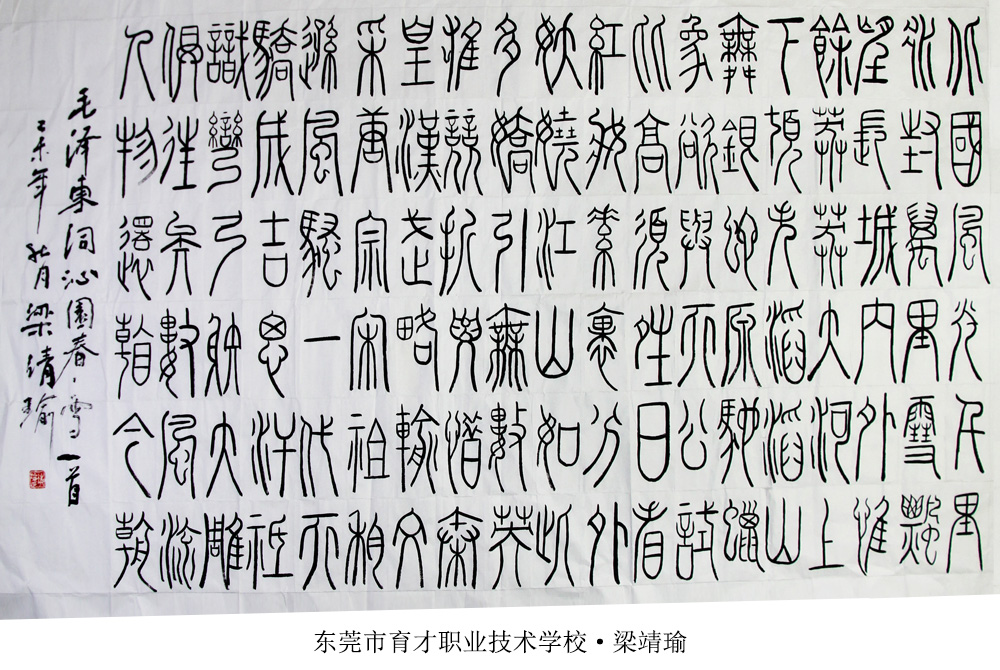 北國風光千里
冰封萬里雪飄
望長城內外惟
餘莽莽大河上
下頓失滔滔山
舞銀蛇原馳蠟
象欲與天公試
比高須晴日看
紅裝素裹分外
妖嬈江山如此
多嬌引無數英
雄競折腰惜秦
皇漢武略輸文
采唐宗宋祖稍
遜風騷一代天
驕成吉思汗祇
識彎弓射大雕
俱往矣數風流
人物還看今朝
毛泽東词沁園春·雪一首
乙未年秋月梁靖瑜
东莞市育才职业技术学校·梁靖瑜